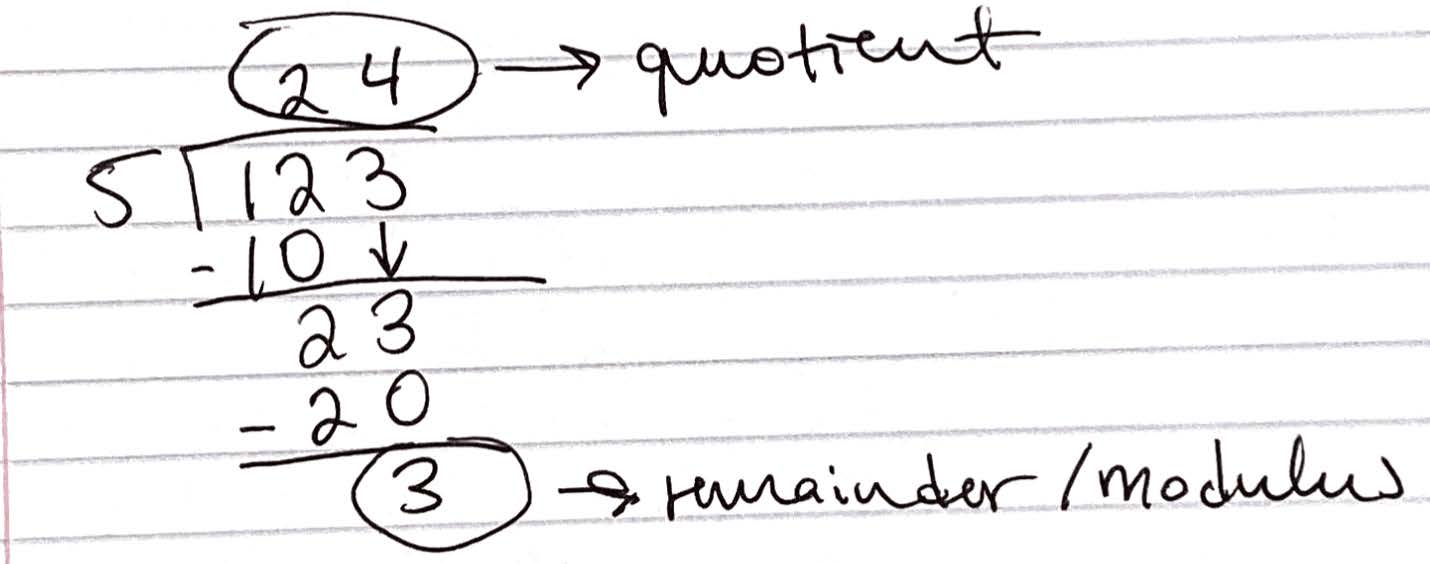 24 → quotient
5 123
-10 ↓
23
-20
3 → remainder/modulus